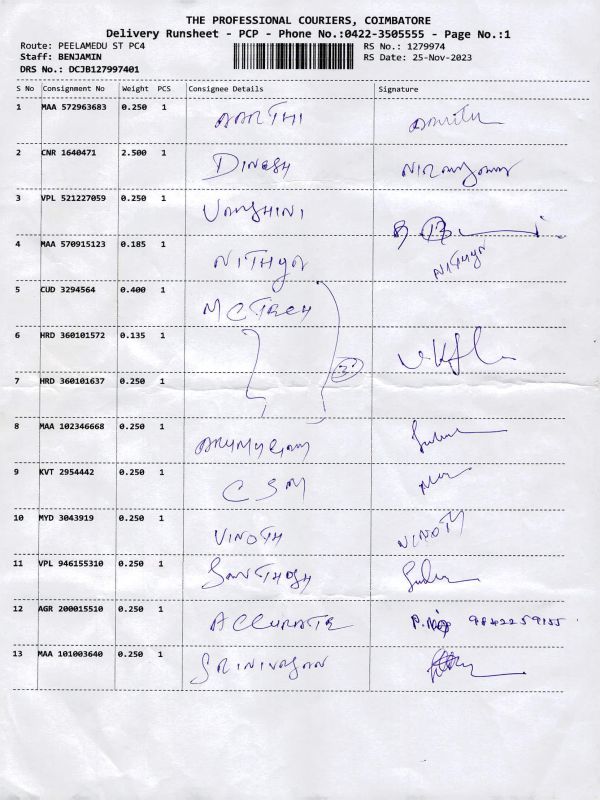 THE PROFESSIONAL COURIERS, COIMBATORE
Delivery Runsheet - PCP - Phone No.:0422-3505555 - Page No.:1
Route: PEELAMEDU ST PC4
RS No.: 1279974
Staff: BENJAMIN
RS Date: 25-Nov-2023
DRS No.: DCJB127997401
S No Consignment No Weight PCS Consignee Details Signature
1 MAA 572963683 0.250 1 AARTHI
2 CNR 1640471 2.500 1 DINESH
3 VPL 521227059 0.250 1 VARSHINI
4 MAA 570915123 0.185 1 NITHYA NITHYA
5 CUD 3294564 0.400 1 MCTECH
6 HRD 360101572 0.135 1
7 HRD 360101637 0.250 1
8 MAA 102346668 0.250 1 ARUMUGAM
9 KVT 2954442 0.250 1 CSM
10 MYD 3043919 0.250 1 VINOTH VINOTH
11 VPL 946155310 0.250 1 SANTHOSH
12 AGR 200015510 0.250 1 ACCURATE 9842259155
13 MAA 101003640 0.250 1 SRINIVASAN